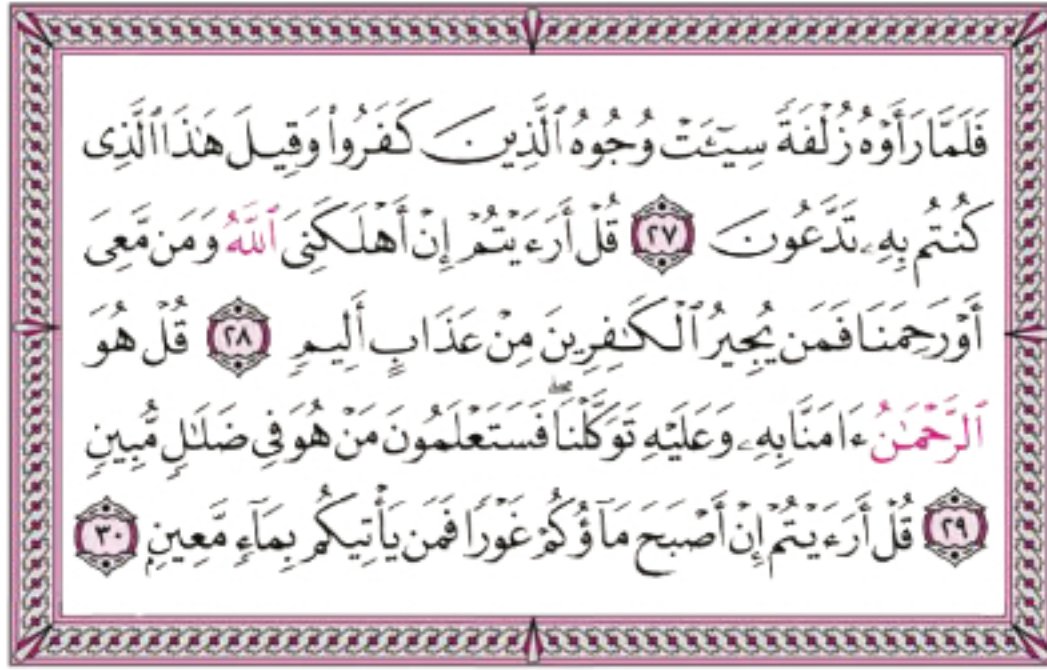 فَلَمَّا رَأَوۡهُ زُلۡفَةٗ سِيٓـَٔتۡ وُجُوهُ ٱلَّذِينَ كَفَرُواْ وَقِيلَ هَٰذَا ٱلَّذِي
كُنتُم بِهِۦ تَدَّعُونَ ٢٧ قُلۡ أَرَءَيۡتُمۡ إِنۡ أَهۡلَكَنِيَ ٱللَّهُ وَمَن مَّعِيَ
أَوۡ رَحِمَنَا فَمَن يُجِيرُ ٱلۡكَٰفِرِينَ مِنۡ عَذَابٍ أَلِيمٖ ٢٨ قُلۡ هُوَ
ٱلرَّحۡمَٰنُ ءَامَنَّا بِهِۦ وَعَلَيۡهِ تَوَكَّلۡنَاۖ فَسَتَعۡلَمُونَ مَنۡ هُوَ فِي ضَلَٰلٖ مُّبِينٖ
٢٩ قُلۡ أَرَءَيۡتُمۡ إِنۡ أَصۡبَحَ مَآؤُكُمۡ غَوۡرٗا فَمَن يَأۡتِيكُم بِمَآءٖ مَّعِينِۭ ٣٠